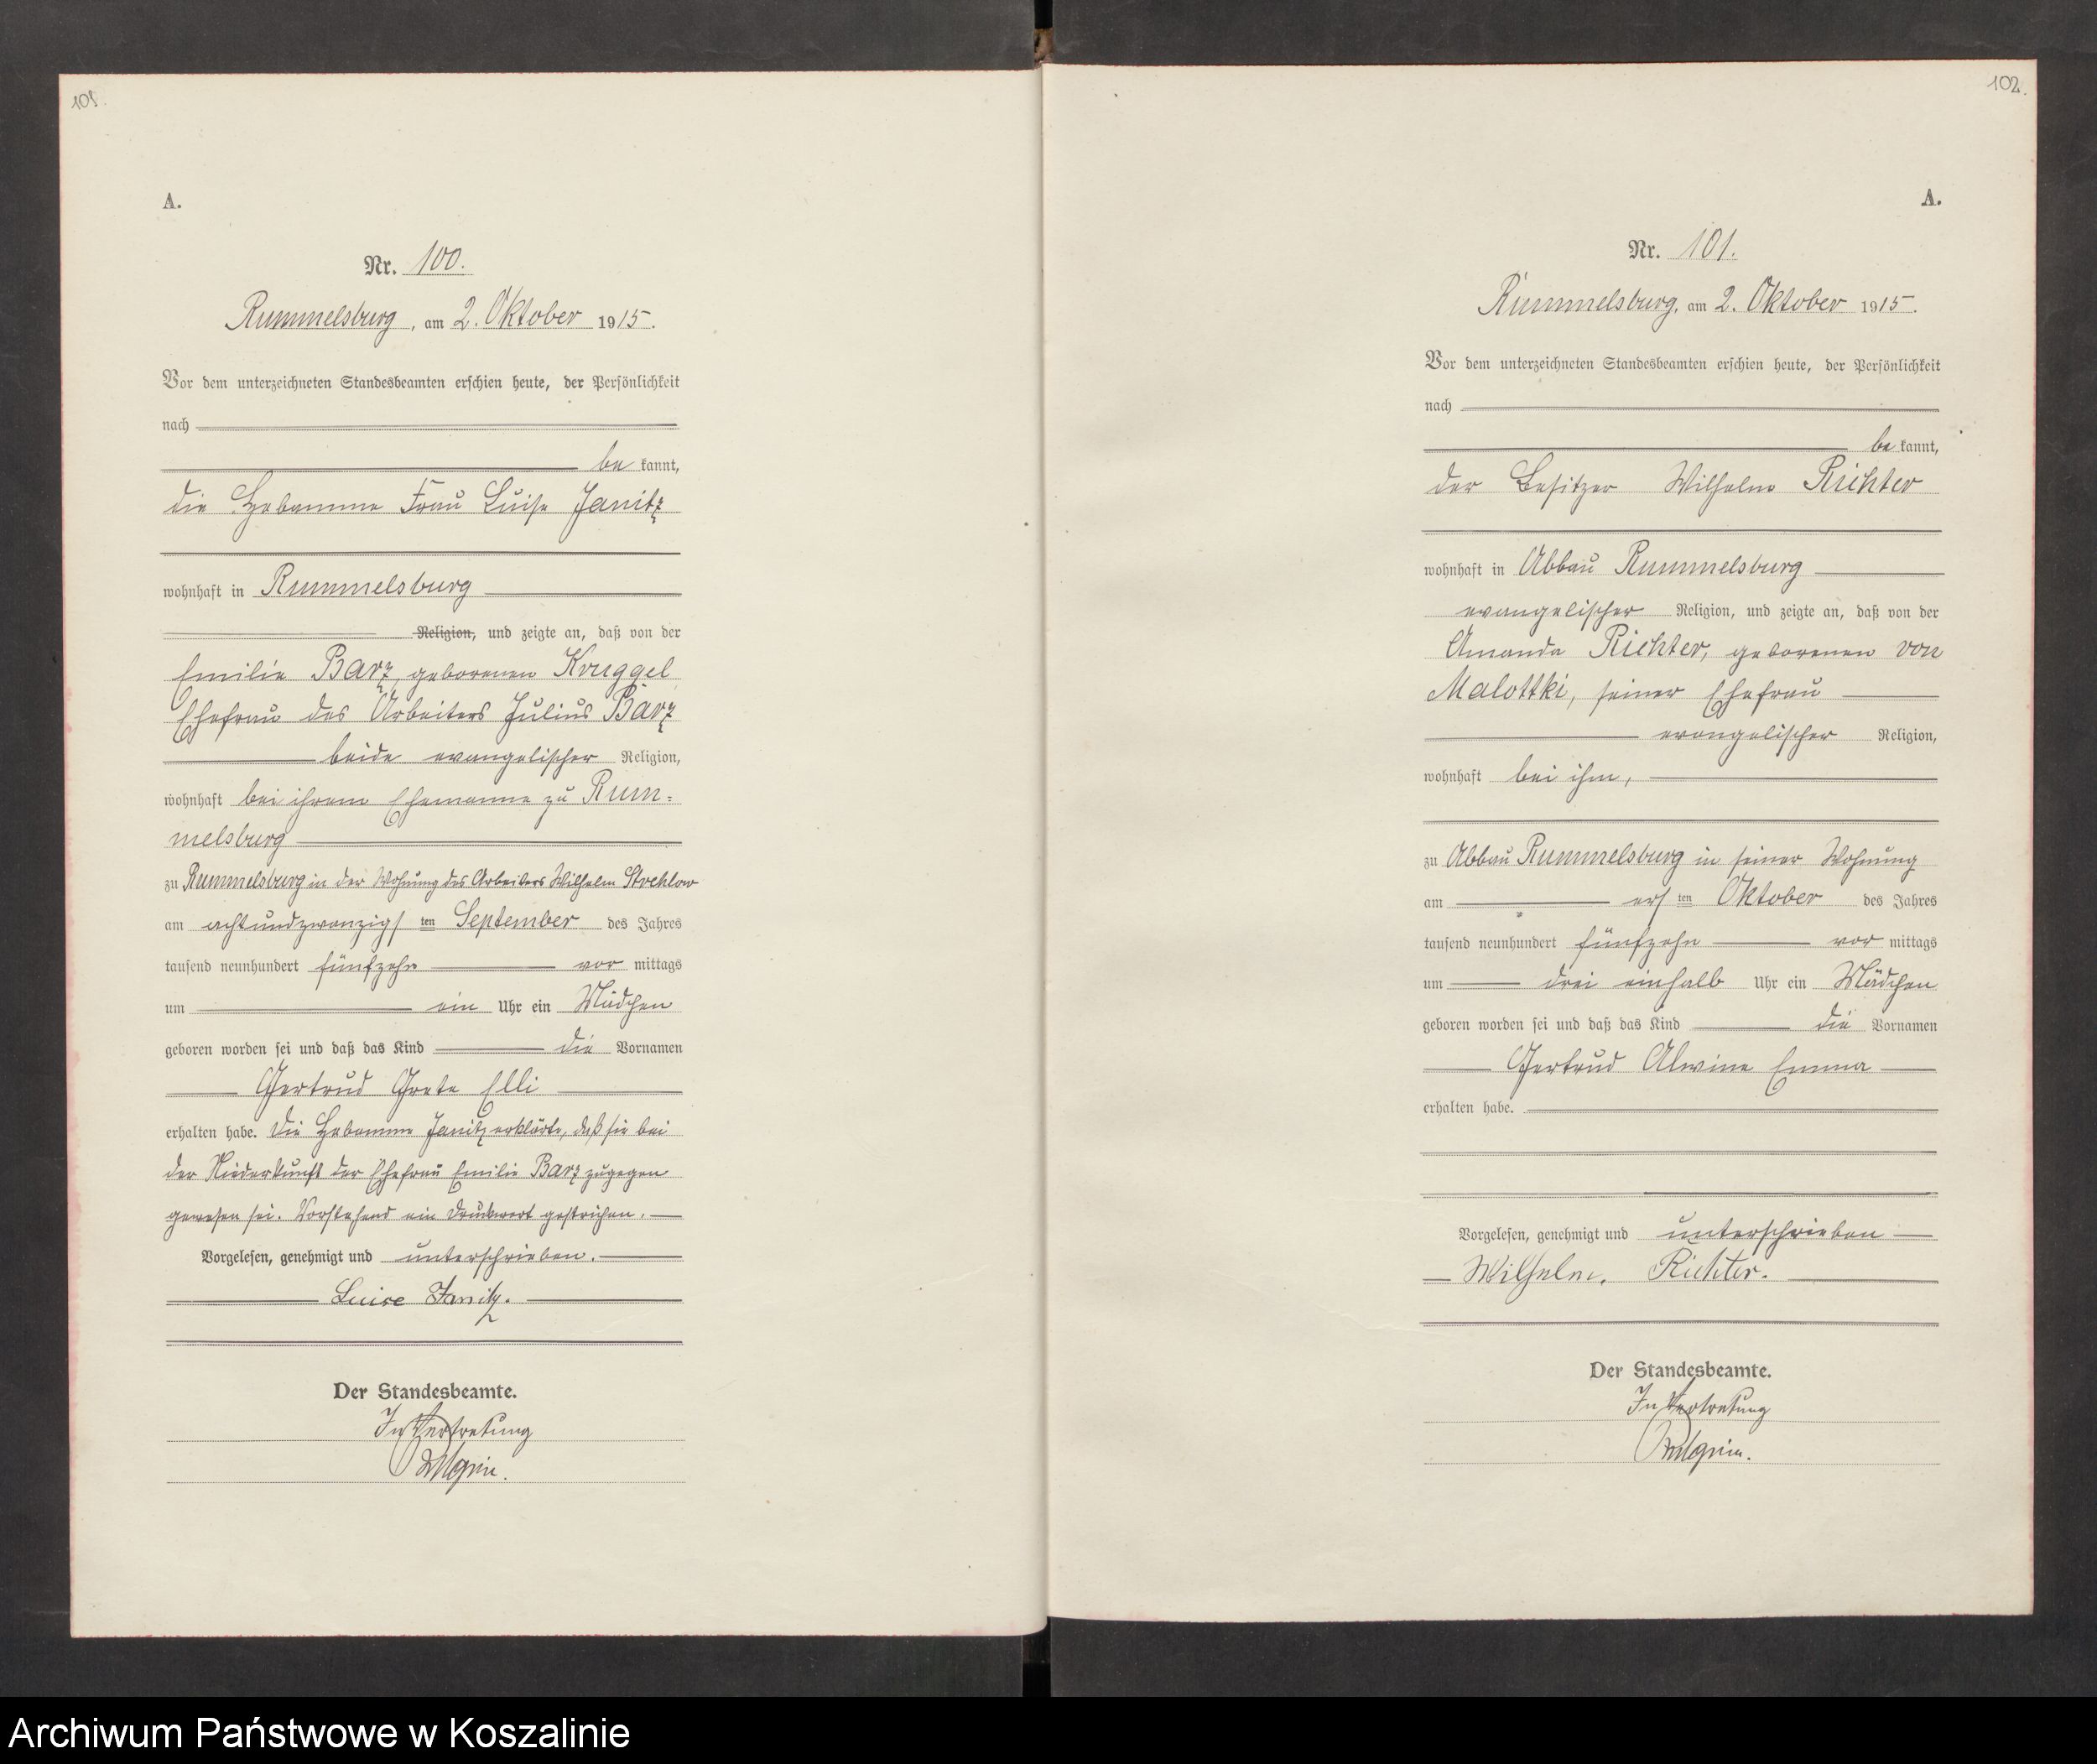 101.
A.
Nr. 100.
Rummelsburg, am 2. Oktober 1915.
Vor dem unterzeichneten Standesbeamten erschien heute, der Persönlichkeit
nach
be kannt,
die Hebamme Frau Luise Janitz
wohnhaft in Rummelsburg
Religion, und zeigte an, daß von der
Emilie Barz, geborenen Kruggel
Ehefrau des Arbeiters Julius Barz
beide evangelischer Religion,
wohnhaft bei ihrem Ehemanne zu Rum=
melsburg
zu Rummelsburg in der Wohnung des Arbeiters Wilhelm Strehlow
am achtundzwanzigsten September des Jahres
tausend neunhundert fünfzehn vor mittags
um ein Uhr ein Mädchen
geboren worden sei und daß das Kind die Vornamen
Gertrud Grete Elli
erhalten habe. Die Hebamme Janitz erklärte, daß sie bei
der Niederkunft der Ehefrau Emilie Barz zugegen
gewesen sei. Vorstehend ein Druckwort gestrichen.
Vorgelesen, genehmigt und unterschrieben.
Luise Janitz.
Der Standesbeamte.
In Vertretung
102.
A.
Nr. 101.
Rummelsburg, am 2. Oktober 1915.
Vor dem unterzeichneten Standesbeamten erschien heute, der Persönlichkeit
nach
be kannt,
der Besitzer Wilhelm Richter
wohnhaft in Abbau Rummelsburg
evangelischer Religion, und zeigte an, daß von der
Amanda Richter, geborenen von
Malottki, seiner Ehefrau
evangelischer Religion,
wohnhaft bei ihm,
zu Abbau Rummelsburg in seiner Wohnung
am ersten Oktober des Jahres
tausend neunhundert fünfzehn vor mittags
um drei einhalb Uhr ein Mädchen
geboren worden sei und daß das Kind die Vornamen
Gertrud Alwine Emma
erhalten habe.
Vorgelesen, genehmigt und unterschrieben
Wilhelm Richter.
Der Standesbeamte.
In Vertretung
Archiwum Państwowe w Koszalinie